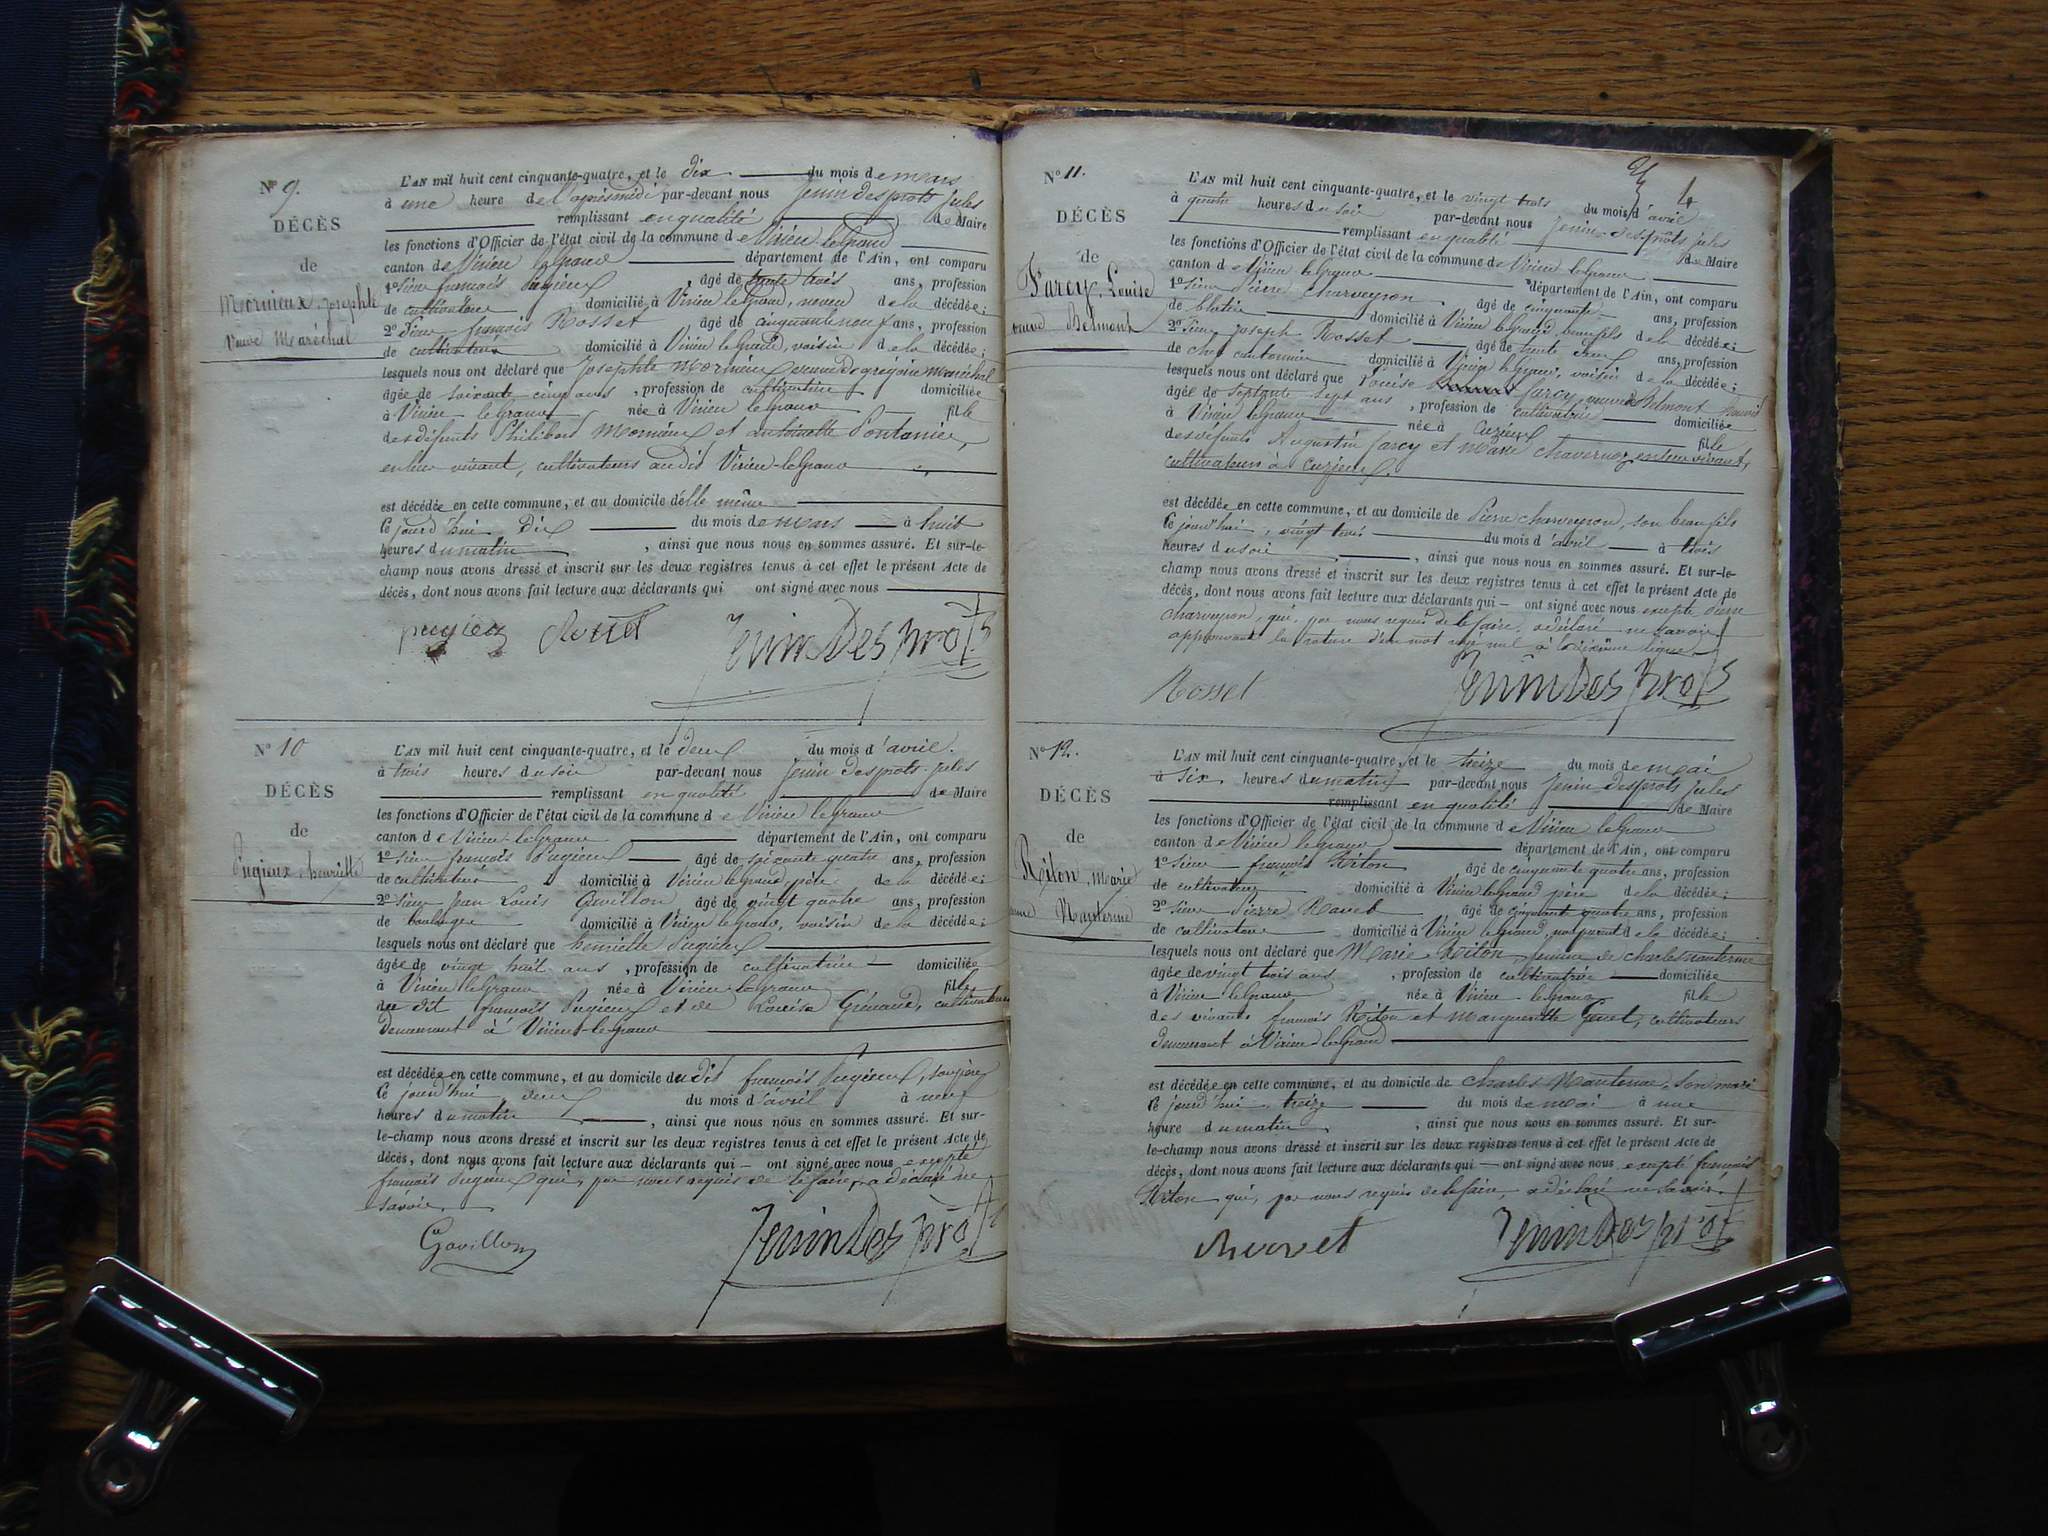 N° 9.
DÉCÈS
de
Mornieux, Josephte
veuve Maréchal
L'AN mil huit cent cinquante-quatre, et le dix du mois de mars
à une heure de l'après midi par-devant nous Jenin desprots jules
remplissant en qualité de Maire
les fonctions d'Officier de l'état civil de la commune de Virieu leGrand
canton de Virieu leGrand département de l'Ain, ont comparu
1° Sieur françois Pugieux âgé de trente trois ans, profession
de cultivateur domicilié à Virieu le Grand, neveu de la décédée;
2° Sieur françois Rosset âgé de cinquante neuf ans, profession
de cultivateur domicilié à Virieu le Grand, voisin de la décédée;
lesquels nous ont déclaré que Josephte Mornieux veuve de grégoire Maréchal
âgée de soixante cinq ans, profession de cultivatrice domiciliée
à Virieu le Grand née à Virieu le Grand fille
des défunts Philibert Mornieux et antoinette Pontanier,
en leur vivant, cultivateurs au dit Virieu-leGrand
est décédée en cette commune, et au domicile d'elle même
Ce jourd'hui dix du mois de mars à huit
heures du matin, ainsi que nous nous en sommes assuré. Et sur-le-
champ nous avons dressé et inscrit sur les deux registres tenus à cet effet le présent Acte de
décès, dont nous avons fait lecture aux déclarants qui ont signé avec nous
pugieux JeninDesprots
N° 10
DÉCÈS
de
Pugieux, henriette
L'AN mil huit cent cinquante-quatre, et le deux du mois d'avril.
à trois heures du soir par-devant nous Jenin desprots jules
remplissant en qualité de Maire
les fonctions d'Officier de l'état civil de la commune de Virieu leGrand
canton de Virieu-leGrand département de l'Ain, ont comparu
1° Sieur françois Pugieux âgé de soixante quatre ans, profession
de cultivateur domicilié à Virieu leGrand père de la décédée;
2° Sieur Jean Louis Gavillon âgé de vingt quatre ans, profession
de boulanger domicilié à Virieu leGrand, voisin de la décédée;
lesquels nous ont déclaré que henriette Pugieux
âgée de vingt huit ans, profession de cultivatrice domiciliée
à Virieu leGrand, née à Virieu-leGrand fille
du dit françois Pugieux et de Louise Grénaud, cultivateurs
Demeurant à Virieu-le-Grand
est décédée en cette commune, et au domicile du dit françois Pugieux, son père
Ce jourd'hui deux du mois d'avril à neuf
heures du matin, ainsi que nous nous en sommes assuré. Et sur-
le-champ nous avons dressé et inscrit sur les deux registres tenus à cet effet le présent Acte de
décès, dont nous avons fait lecture aux déclarants qui ont signé avec nous excepté
françois Pugieux qui, par nous requis de le faire, a déclaré ne
savoir.
Gavillon JeninDesprots
N° 11.
DÉCÈS
de
Farcy, Louise
veuve Belmont
L'AN mil huit cent cinquante-quatre, et le vingt trois du mois d'avril
à quatre heures du soir par-devant nous Jenin-desprots jules
remplissant en qualité de Maire
les fonctions d'Officier de l'état civil de la commune de Virieu leGrand
canton de Virieu leGrand département de l'Ain, ont comparu
1° Sieur Pierre Charveyron âgé de cinquante ans, profession
de blatier domicilié à Virieu leGrand beau fils de la décédée;
2° Sieur joseph Rosset âgé de trente deux ans, profession
de chef cantonnier domicilié à Virieu leGrand, voisin de la décédée;
lesquels nous ont déclaré que Louise farcy, veuve Belmont
âgée de septante sept ans, profession de cultivatrice domiciliée
à Virieu leGrand née à Cuzieux fille
des défunts Augustin farcy et Marie Chavernoz en leur vivant,
cultivateurs à Cuzieux.
est décédée en cette commune, et au domicile de Pierre Charveyron, son beau fils
Ce jourd'hui, vingt trois du mois d'avril à trois
heures du soir, ainsi que nous nous en sommes assuré. Et sur-le-
champ nous avons dressé et inscrit sur les deux registres tenus à cet effet le présent Acte de
décès, dont nous avons fait lecture aux déclarants qui ont signé avec nous excepté Pierre
Charveyron, qui, par nous requis de le faire, a déclaré ne savoir.
approuvant la rature d'un mot rayé nul à la dixième ligne.
Rosset JeninDesprots
N° 12.
DÉCÈS
de
Riton, Marie
femme Nanterme
L'AN mil huit cent cinquante-quatre, et le treize du mois de mai
à six heures du matin par-devant nous Jenin desprots jules
remplissant en qualité de Maire
les fonctions d'Officier de l'état civil de la commune de Virieu leGrand
canton de Virieu leGrand département de l'Ain, ont comparu
1° Sieur françois Riton âgé de cinquante quatre ans, profession
de cultivateur domicilié à Virieu leGrand père de la décédée;
2° Sieur Pierre Ravet âgé de cinquante quatre ans, profession
de cultivateur domicilié à Virieu leGrand, non parent de la décédée;
lesquels nous ont déclaré que Marie Riton, femme de charles nanterme
âgée de vingt trois ans, profession de cultivatrice domiciliée
à Virieu-leGrand née à Virieu-leGrand fille
des vivants françois Riton et Marguerite Genet, cultivateurs
Demeurant à Virieu leGrand
est décédée en cette commune, et au domicile de Charles Nanterme, son mari
Ce jourd'hui treize du mois de mai à une
heure du matin, ainsi que nous nous en sommes assuré. Et sur-
le-champ nous avons dressé et inscrit sur les deux registres tenus à cet effet le présent Acte de
décès, dont nous avons fait lecture aux déclarants qui ont signé avec nous excepté françois
Riton qui, par nous requis de le faire, a déclaré ne savoir.
JeninDesprots